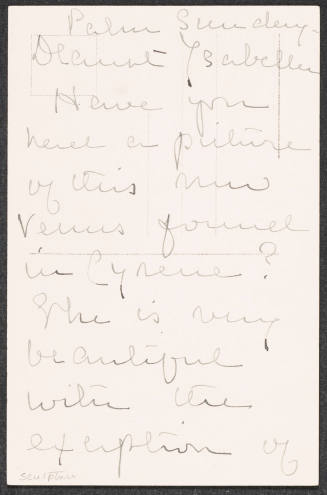 Palm Sunday -
Dearest Ysabella
Have you
here a picture
of this new
Venus found
in Cyrene?
She is very
beautiful
with the
exception of
sculpture